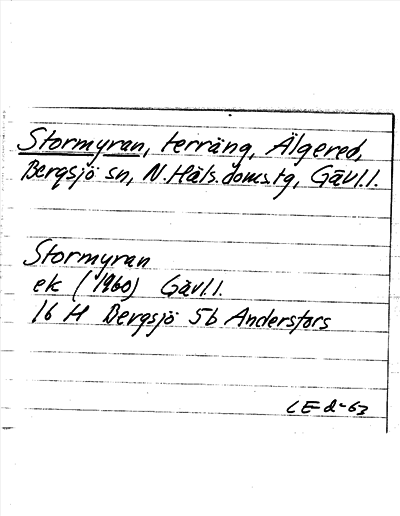 Stormyran, terräng, Älgered,
Bergsjö sn, N. Häls. doms. tg, Gävl. l.
Stormyran
ek (1960) Gävl. l.
16 H Bergsjö 5b Andersfors
LE d-63